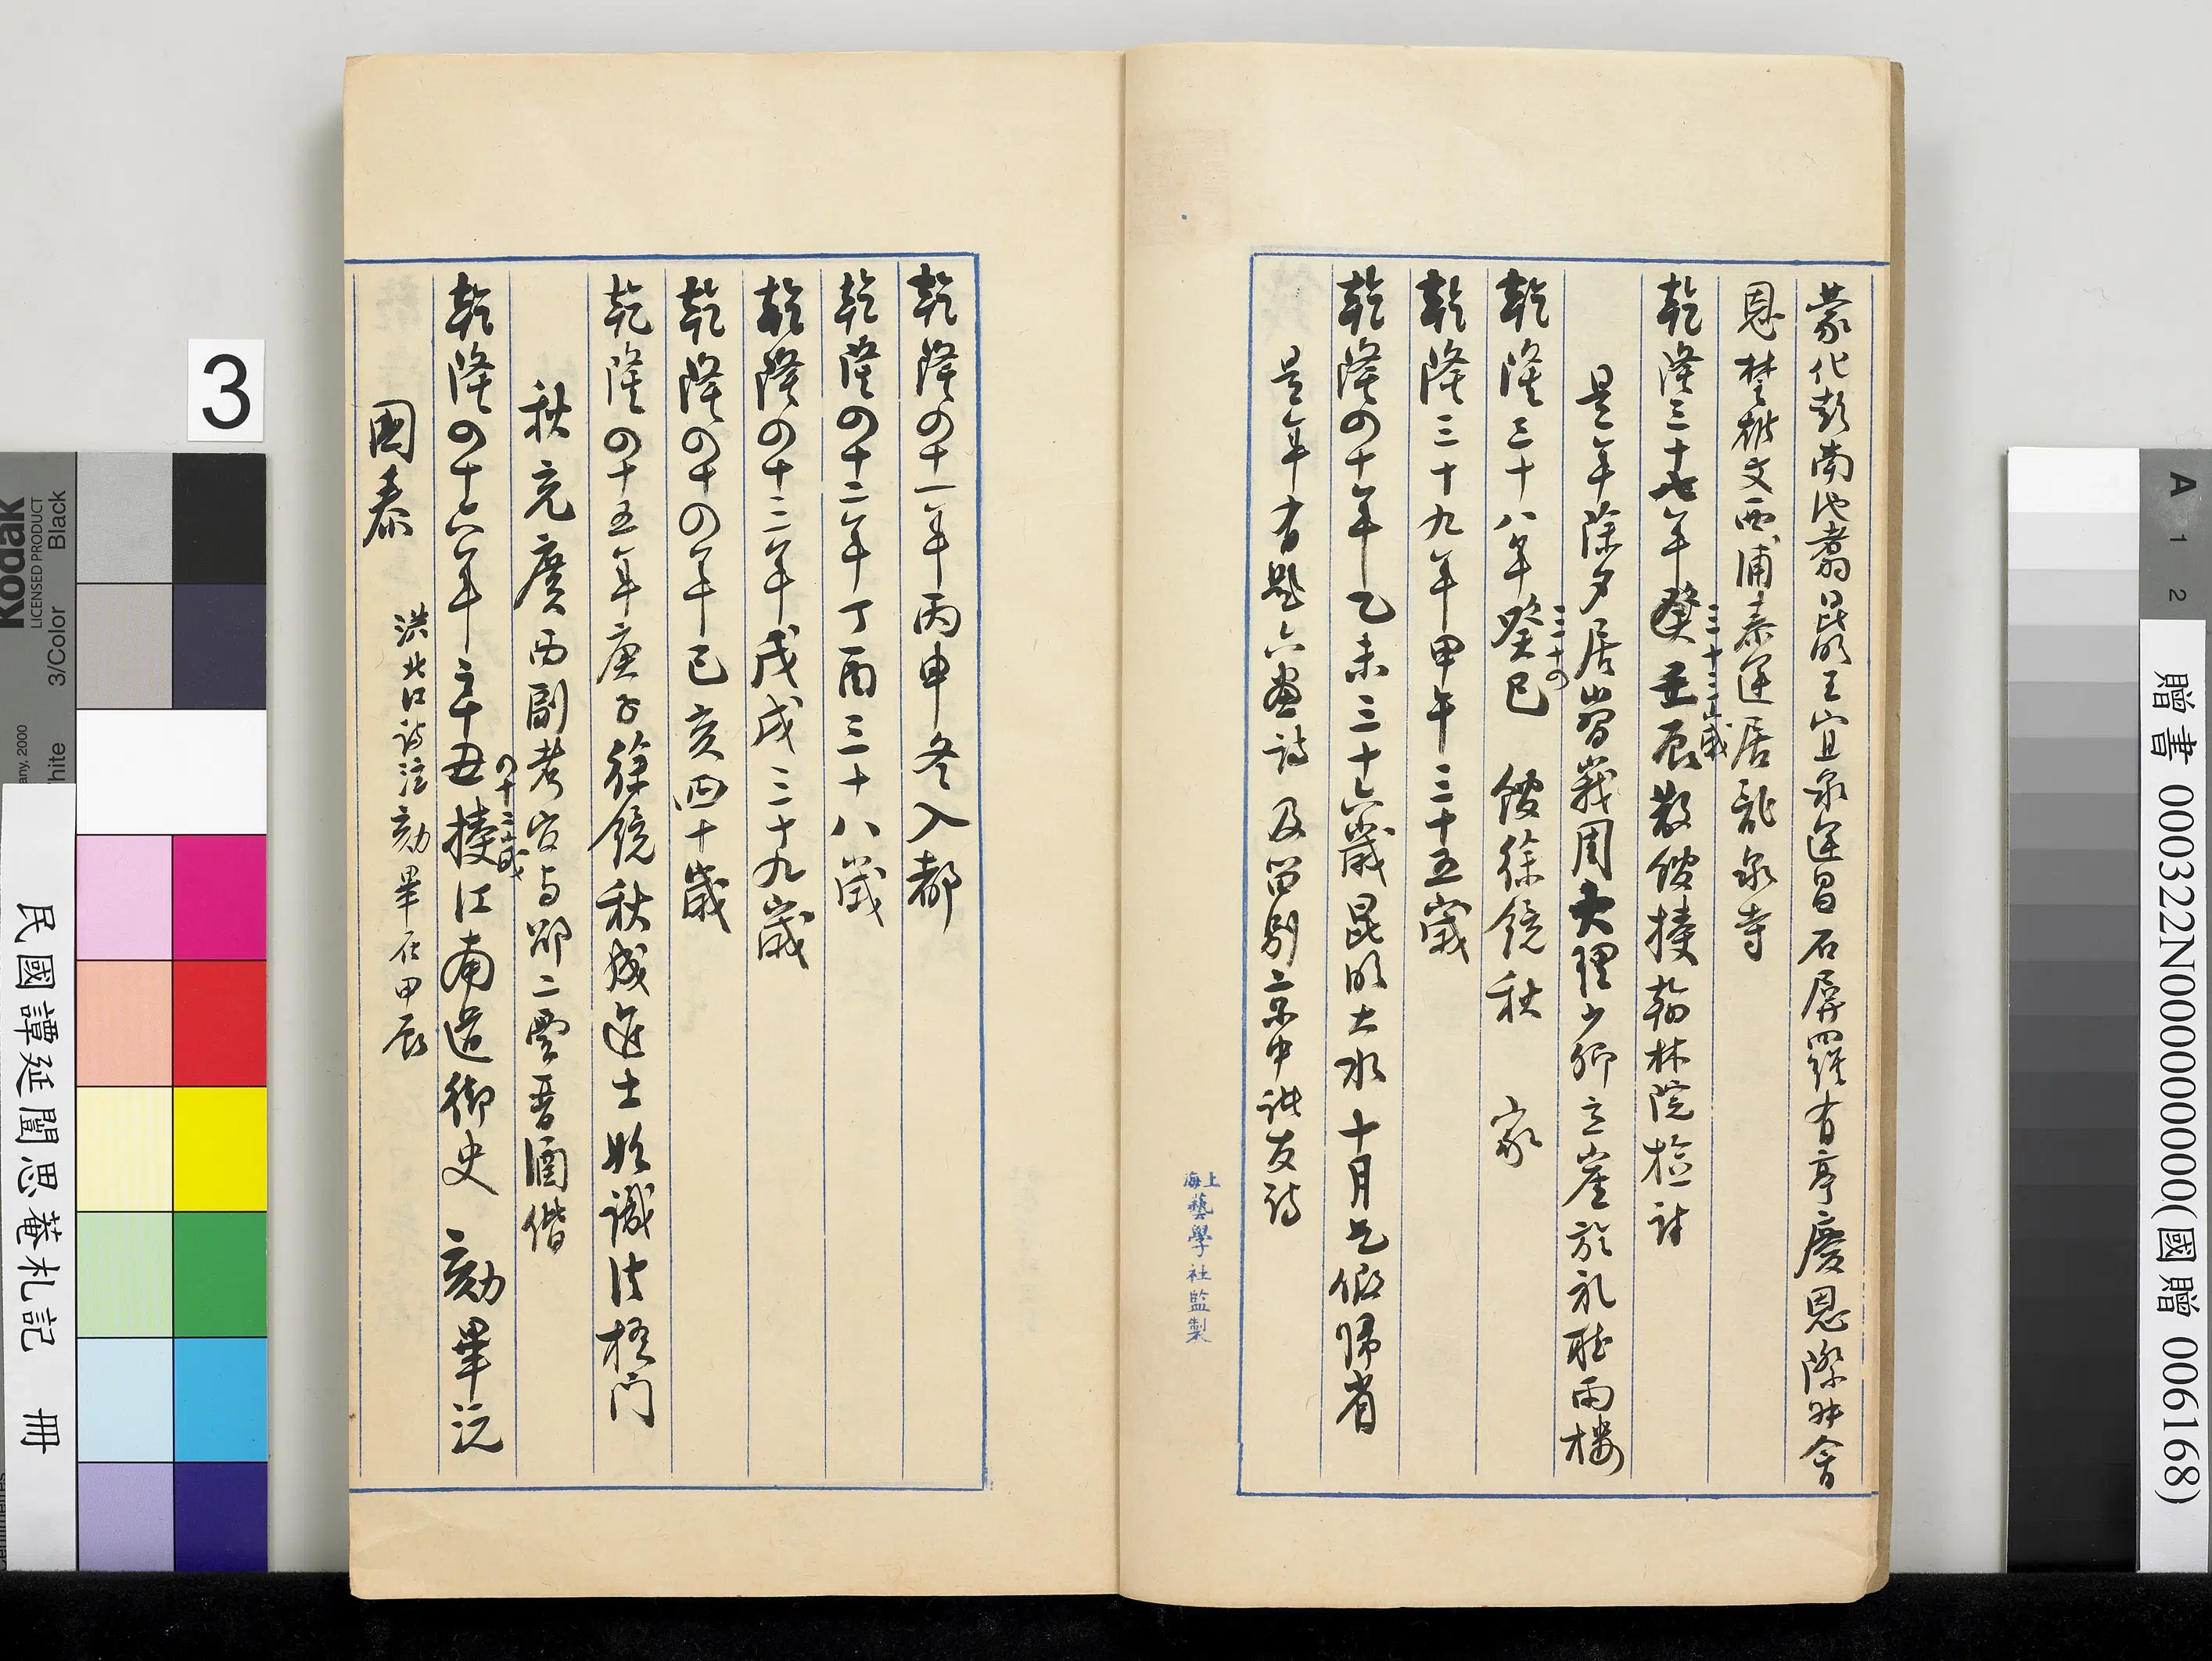 蒙化彭南池翥昆明王宜泉運昌石屏羅有亭慶恩際叔會
恩楚椒文西浦泰運居龍泉寺
乾隆三十七年壬辰散館授翰林院檢討
三十三歲
是年除夕居甞義周大理少卿立崖於礼聽雨樓
乾隆三十八年癸巳 館徐鏡秋 家
三十四
乾隆三十九年甲午三十五歲
乾隆四十年乙未三十六歲昆明大水十月乞假歸省
是年有題六畫詩及留别京中諸友詩
上海藝學社監製
乾隆四十一年丙申冬入都
乾隆四十二年丁酉三十八歲
乾隆四十三年戊戌三十九歲
乾隆四十四年己亥四十歲
乾隆四十五年庚子徐鏡秋成進士始識法梧门
秋充廣西副考官与鄒二雲晋涵偕
乾隆四十六年辛丑授江南道御史 劾畢沅
四十二歲
國泰 洪北江詩注劾畢在甲辰
3
Kodak
LICENSED PRODUCT
3/Color Black
White
any, 2000
民國譚延闓思菴札記 冊
A 1 2
贈書 000322N000000000(國贈 006168)